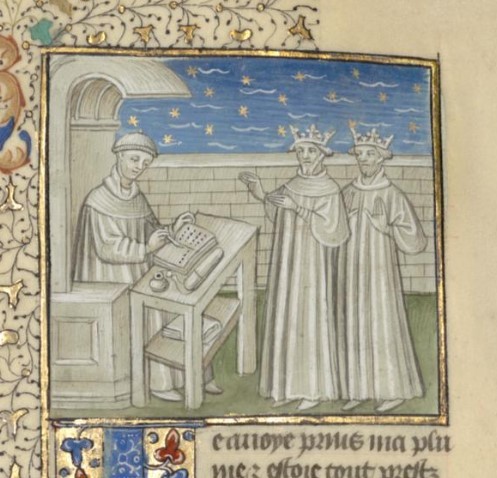 e auoye prins ma plu
me ⁊ estoie tout prestz